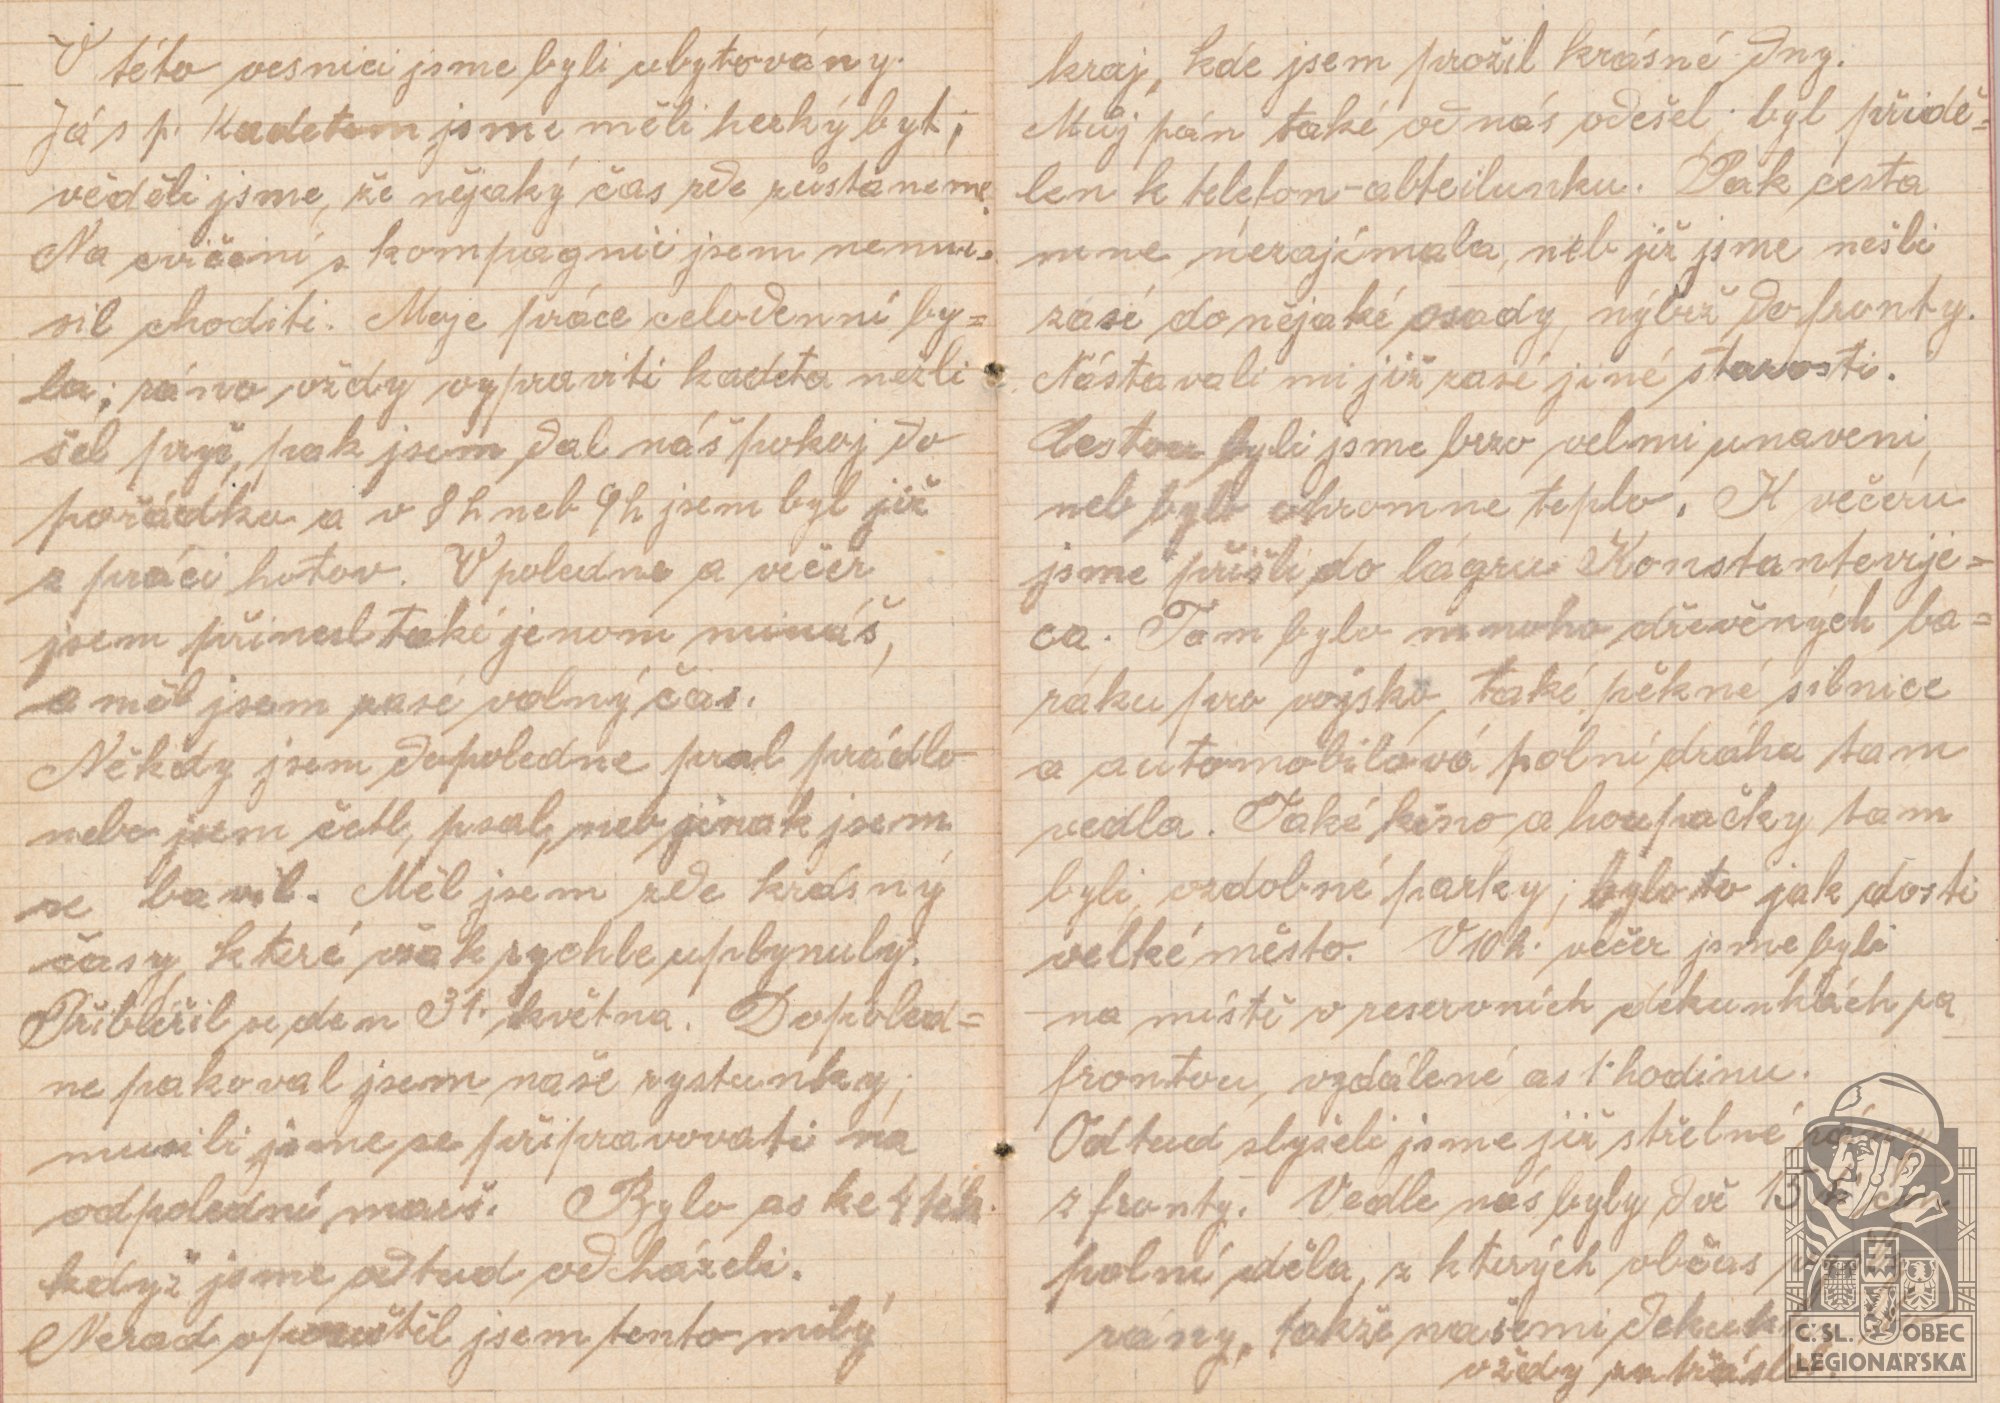 V této vesnici jsme byli ubytovány.
Já s p. Kadetem jsme měli hezký byt,
věděli jsme, že nějaký čas zde zůstaneme.
Na cvičení s kompagnií jsem nemu-
sil choditi. Moje práce celodenní by=
la; ráno vždy vypraviti kadeta nežli
šel pryč, pak jsem dal náš pokoj do
pořádku a v 8h neb 9h jsem byl již
z práci hotov. V poledne a večer
jsem přinesl také jenom mináš,
a měl jsem zasé volný čas.
Někdy jsem dopoledne pral prádlo
nebo jsem četl, psal, neb jinak jsem
se bavil. Měl jsem zde krásný
časy, které však rychle uplynuly.
Přiblížil se den 31. května. Dopoled=
ne pakoval jsem naše rystunky,
musili jsme se připravovati na
odpolední marš. Bylo as ke 4 té h.
když jsme odtud odcházeli.
Nerad opouštěl jsem tento milý
kraj, kde jsem prožil krásné dny.
Můj pán také od nás odešel, byl přidě=
len k telefon-abteilunku. Pak cesta
mne nezajímala, neb již jsme nešli
zasé do nějaké osady, nýbrž do fronty.
Nástavali mi již zasé jiné starosti.
Cestou byli jsme brzo velmi unaveni,
neb bylo ohromne teplo. K večeru
jsme přišli do lágru Konstantevije=
ca. Tam bylo mnoho dřevěných ba=
ráku pro vojsko, také pěkné silnice
a automobilová polní dráha tam
vedla. Také kino a houpačky tam
byli, ozdobné parky, bylo to jak dosti
velké město. V 10h. večer jsme byli
na místě v reservních dekunkách za
frontou, vzdálené as 1 hodinu.
Odtud slyšeli jsme již střelné rány
z fronty. Vedle nás byly dvě 15
polní děla, z kterých občas
rány, takže našemi
vždy zatřáslo.
Č.SL. OBEC
LEGIONÁŘSKÁ